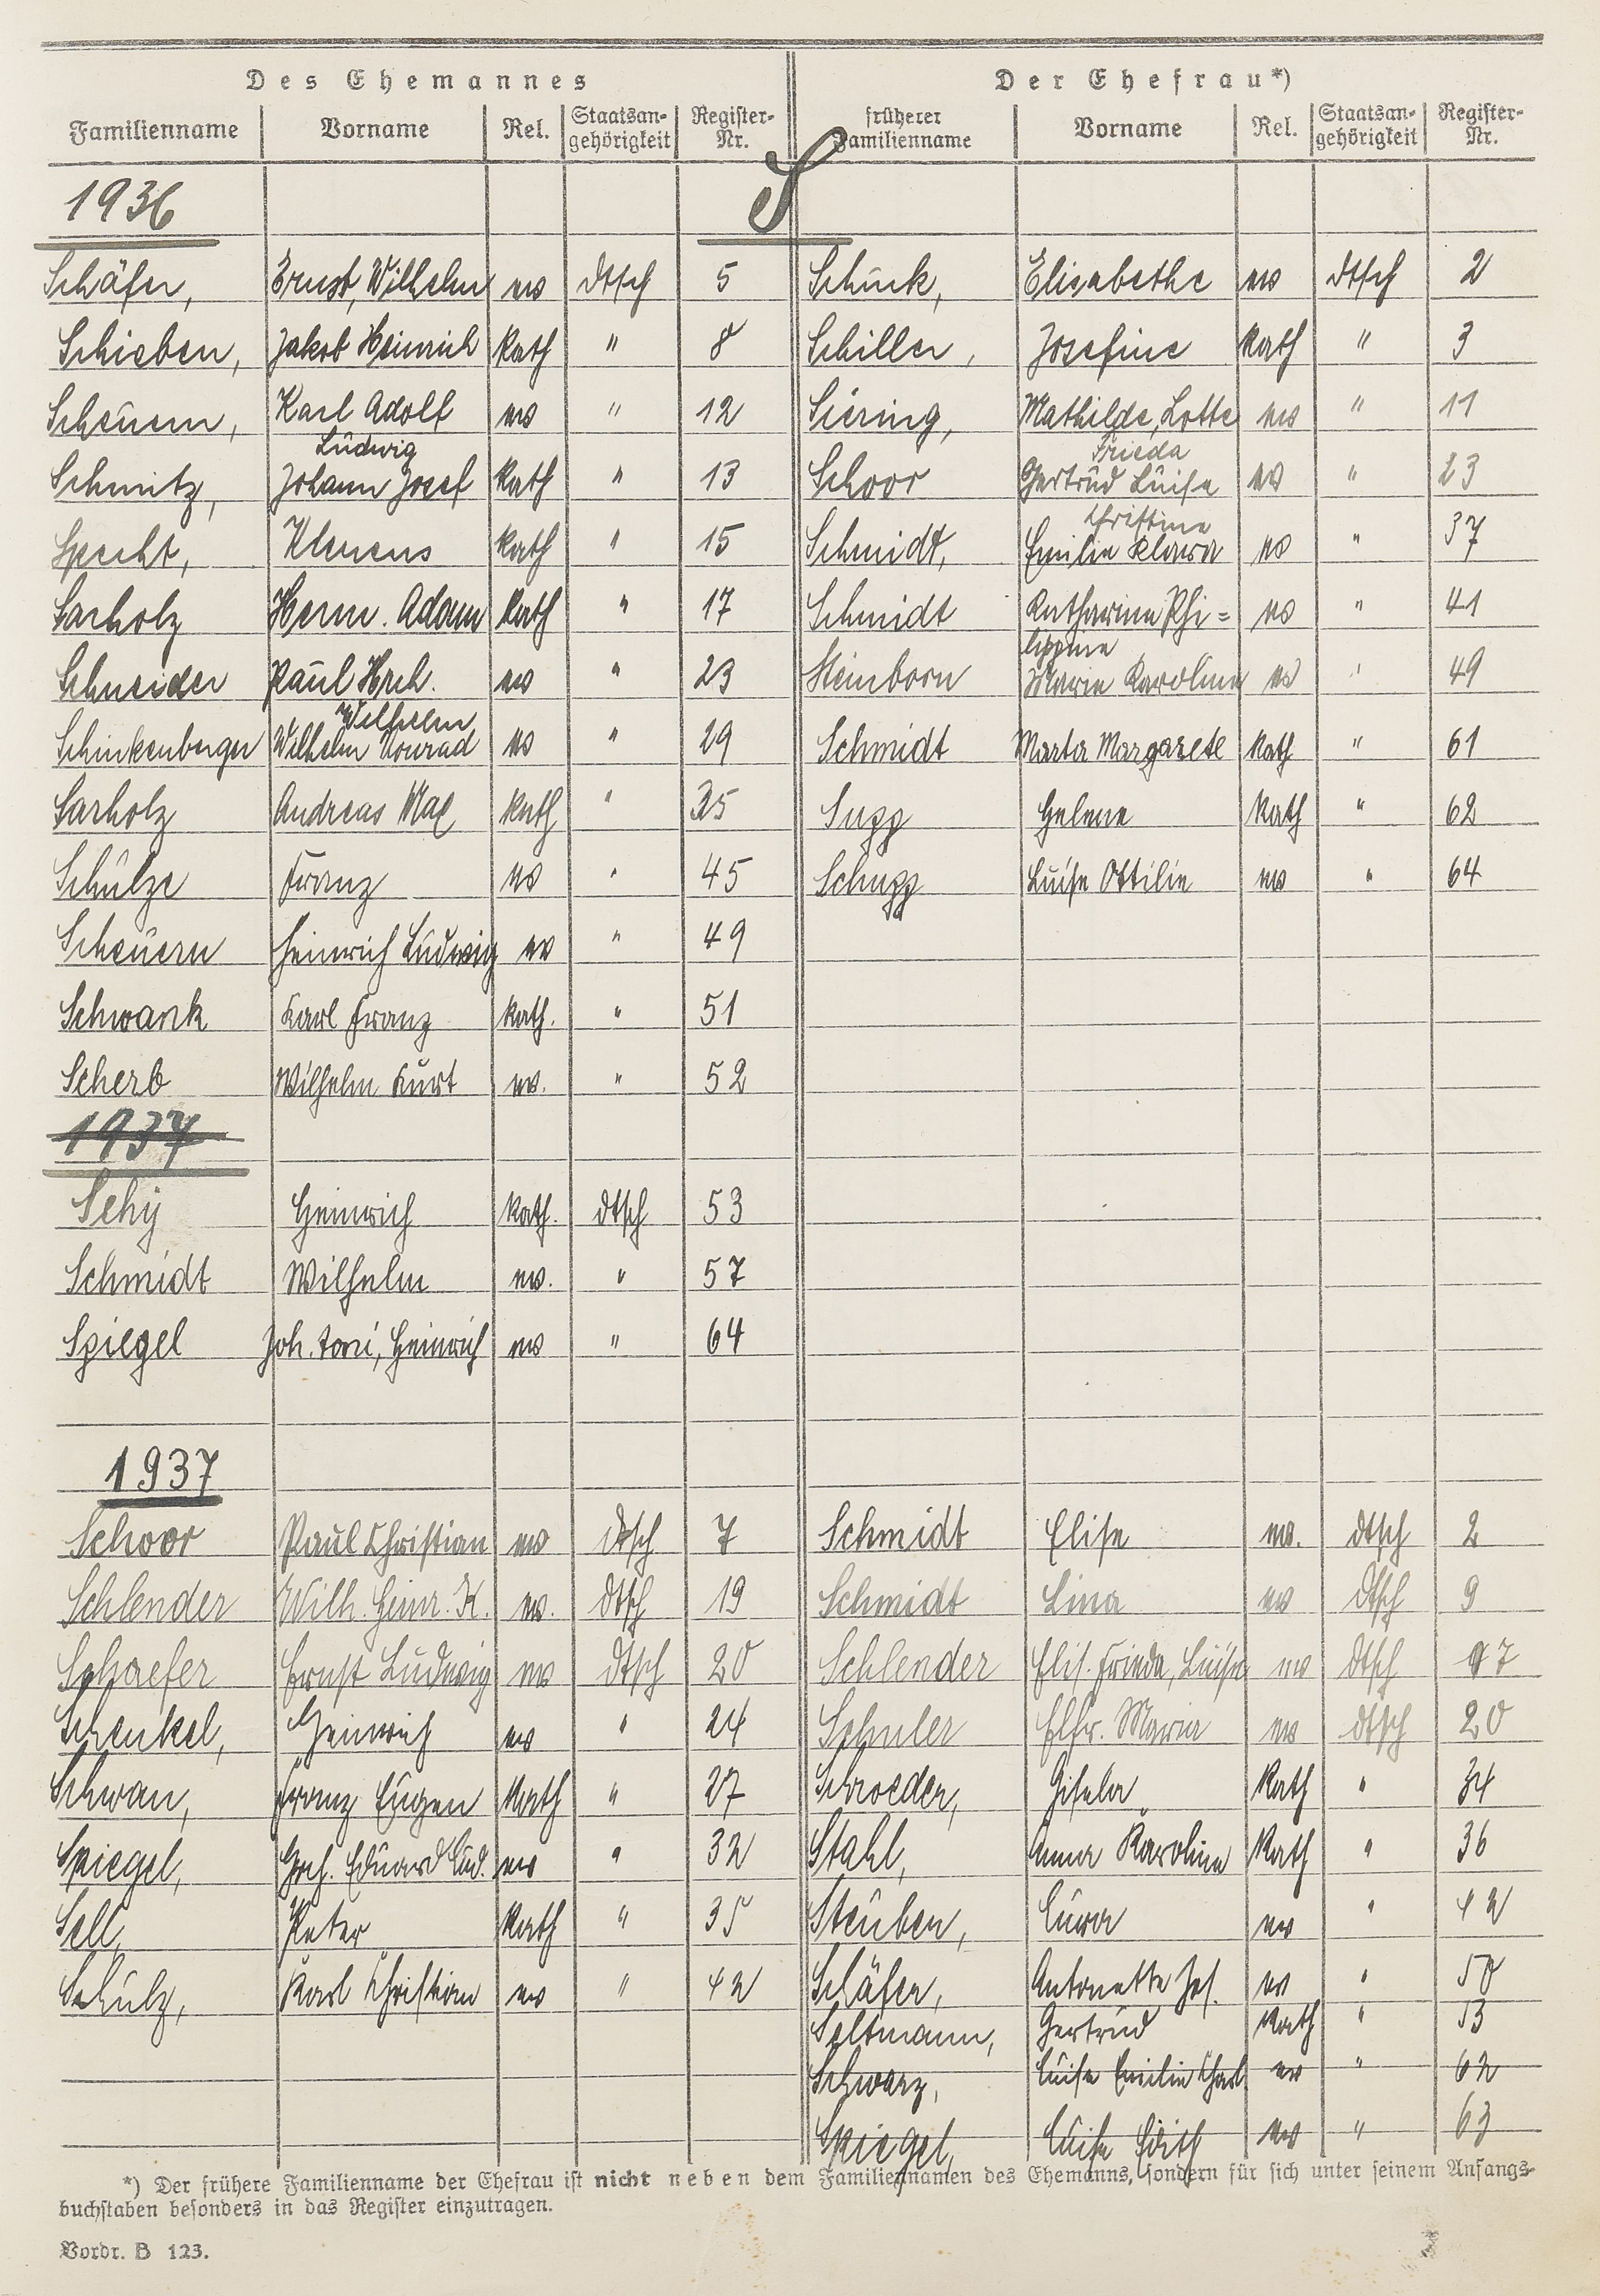 Des Ehemannes Der Ehefrau*)
Familienname Vorname Rel. Staatsan-gehörigkeit Register-Nr. früherer Familienname Vorname Rel. Staatsan-gehörigkeit Register-Nr.
1936 S
Schäfer, Ernst, Wilhelm ev dtsch 5 Schuck, Elisabethe ev dtsch 2
Schieben, Jakob Heinrich kath " 8 Schiller, Josefine kath " 3
Scheuern, Karl Adolf ev " 12 Siering, Mathilde, Lotte ev " 11
Ludwig Frieda
Schmitz, Johann Josef kath " 13 Schoor Gertrud Luise ev " 23
Christine
Specht, Klemens kath " 15 Schmidt, Emilie Klara ev " 37
Sarholz Herm. Adam kath " 17 Schmidt Katharina Phi= ev " 41
lippine
Schneider Paul Hrch. ev " 23 Steinborn Marie Karoline ev " 49
Wilhelm
Schinkenberger Wilhelm Konrad ev " 29 Schmidt Marta Margarete kath " 61
Sarholz Andreas Max kath " 35 Supp Helene kath " 62
Schulze Franz ev " 45 Schupp Luise Ottilie ev " 64
Scheuern Heinrich Ludwig ev " 49
Schwank Karl Franz kath. " 51
Scherb Wilhelm Kurt ev. " 52
1937
Schy Heinrich kath. dtsch 53
Schmidt Wilhelm ev. " 57
Spiegel Joh. Toni, Heinrich ev " 64
1937
Schoor Paul Christian ev dtsch 7 Schmidt Elise ev. dtsch 2
Schlender Wilh. Heinr. K. ev. dtsch 19 Schmidt Lina ev dtsch 9
Schaefer Ernst Ludwig ev dtsch 20 Schlender Elis. Frieda, Luise ev dtsch 17
Schenkel, Heinrich ev " 24 Schuler Elfr. Maria ev dtsch 20
Schwan, Franz Eugen kath " 27 Schroeder, Gisela kath " 34
Spiegel, Eduard Lud. ev " 32 Stahl, Anna Karoline kath " 36
Sell, Peter kath " 35 Steuben, ev " 42
Schulz, Karl Christian ev " 42 Schäfer, Antonette Jos. ev " 50
Seltmann, Gertrud kath " 53
Schwarz, Luise Emilie Charl ev " 62
Spiegel, Luise Edith ev " 63
*) Der frühere Familienname der Ehefrau ist nicht neben dem Familiennamen des Ehemanns, sondern für sich unter seinem Anfangs-
buchstaben besonders in das Register einzutragen.
Vordr. B 123.